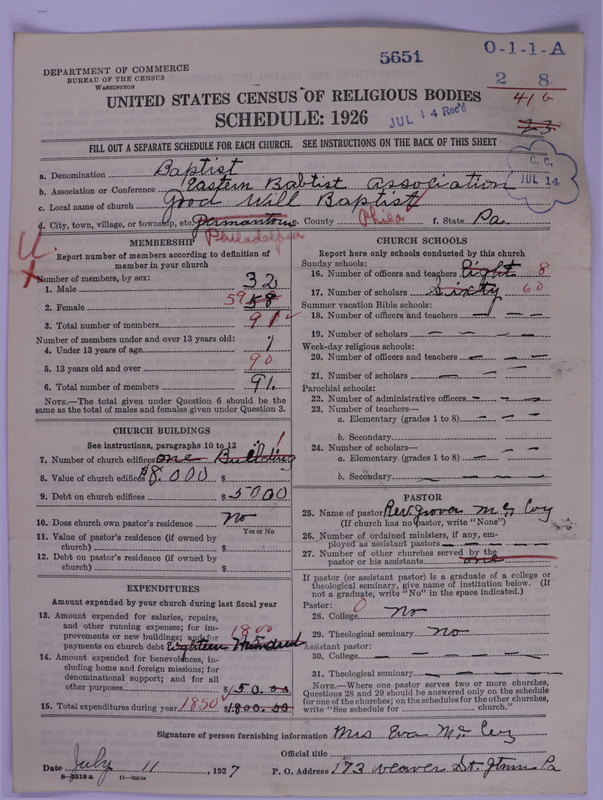 5651
0-1-1-A
DEPARTMENT OF COMMERCE
BUREAU OF THE CENSUS
WASHINGTON
2 8
416
UNITED STATES CENSUS OF RELIGIOUS BODIES
SCHEDULE: 1926
JUL 14 Rec'd
23
FILL OUT A SEPARATE SCHEDULE FOR EACH CHURCH. SEE INSTRUCTIONS ON THE BACK OF THIS SHEET
C. C.
JUL 14
a. Denomination Baptist
b. Association or Conference Eastern Babtist association
c. Local name of church Good Will Baptist
d. City, town, village, or township, etc. Jermantown e. County Phila f. State Pa.
Philadelphia
U
MEMBERSHIP
Report number of members according to definition of
member in your church
Number of members, by sex:
1. Male 32
2. Female 59 58
3. Total number of members 91
Number of members under and over 13 years old:
4. Under 13 years of age 1
5. 13 years old and over 90
6. Total number of members 91.
NOTE.—The total given under Question 6 should be the
same as the total of males and females given under Question 3.
CHURCH BUILDINGS
See instructions, paragraphs 10 to 12
7. Number of church edifices one Building 1
8. Value of church edifices $8.000 $
9. Debt on church edifices $5000
10. Does church own pastor's residence No
Yes or No
11. Value of pastor's residence (if owned by
church) $
12. Debt on pastor's residence (if owned by
church) $
EXPENDITURES
Amount expended by your church during last fiscal year
13. Amount expended for salaries, repairs,
and other running expenses; for im-
provements or new buildings; and for 1800
payments on church debt Eighteen Hundred
14. Amount expended for benevolences, in-
cluding home and foreign missions; for
denominational support; and for all
other purposes $ 50.00
15. Total expenditures during year 1850 $1800.00
CHURCH SCHOOLS
Report here only schools conducted by this church
Sunday schools:
16. Number of officers and teachers Eight 8
17. Number of scholars Sixty 60
Summer vacation Bible schools:
18. Number of officers and teachers
19. Number of scholars
Week-day religious schools:
20. Number of officers and teachers
21. Number of scholars
Parochial schools:
22. Number of administrative officers
23. Number of teachers—
a. Elementary (grades 1 to 8)
b. Secondary
24. Number of scholars—
a. Elementary (grades 1 to 8)
b. Secondary
PASTOR
25. Name of pastor Rev. Grover McCoy
(If church has no pastor, write "None")
26. Number of ordained ministers, if any, em-
ployed as assistant pastors
27. Number of other churches served by the
pastor or his assistants one
If pastor (or assistant pastor) is a graduate of a college or
theological seminary, give name of institution below. (If
not a graduate, write "No" in the space indicated.)
Pastor: 0
28. College No
29. Theological seminary No
Assistant pastor:
30. College
31. Theological seminary
NOTE.—Where one pastor serves two or more churches,
Questions 28 and 29 should be answered only on the schedule
for one of the churches; on the schedules for the other churches,
write "See schedule for church."
Signature of person furnishing information Mrs Eva McCoy
Official title
Date July 11, 1927 P. O. Address 173 Weaver St. Gtown Pa
8—5518a 11—9051a